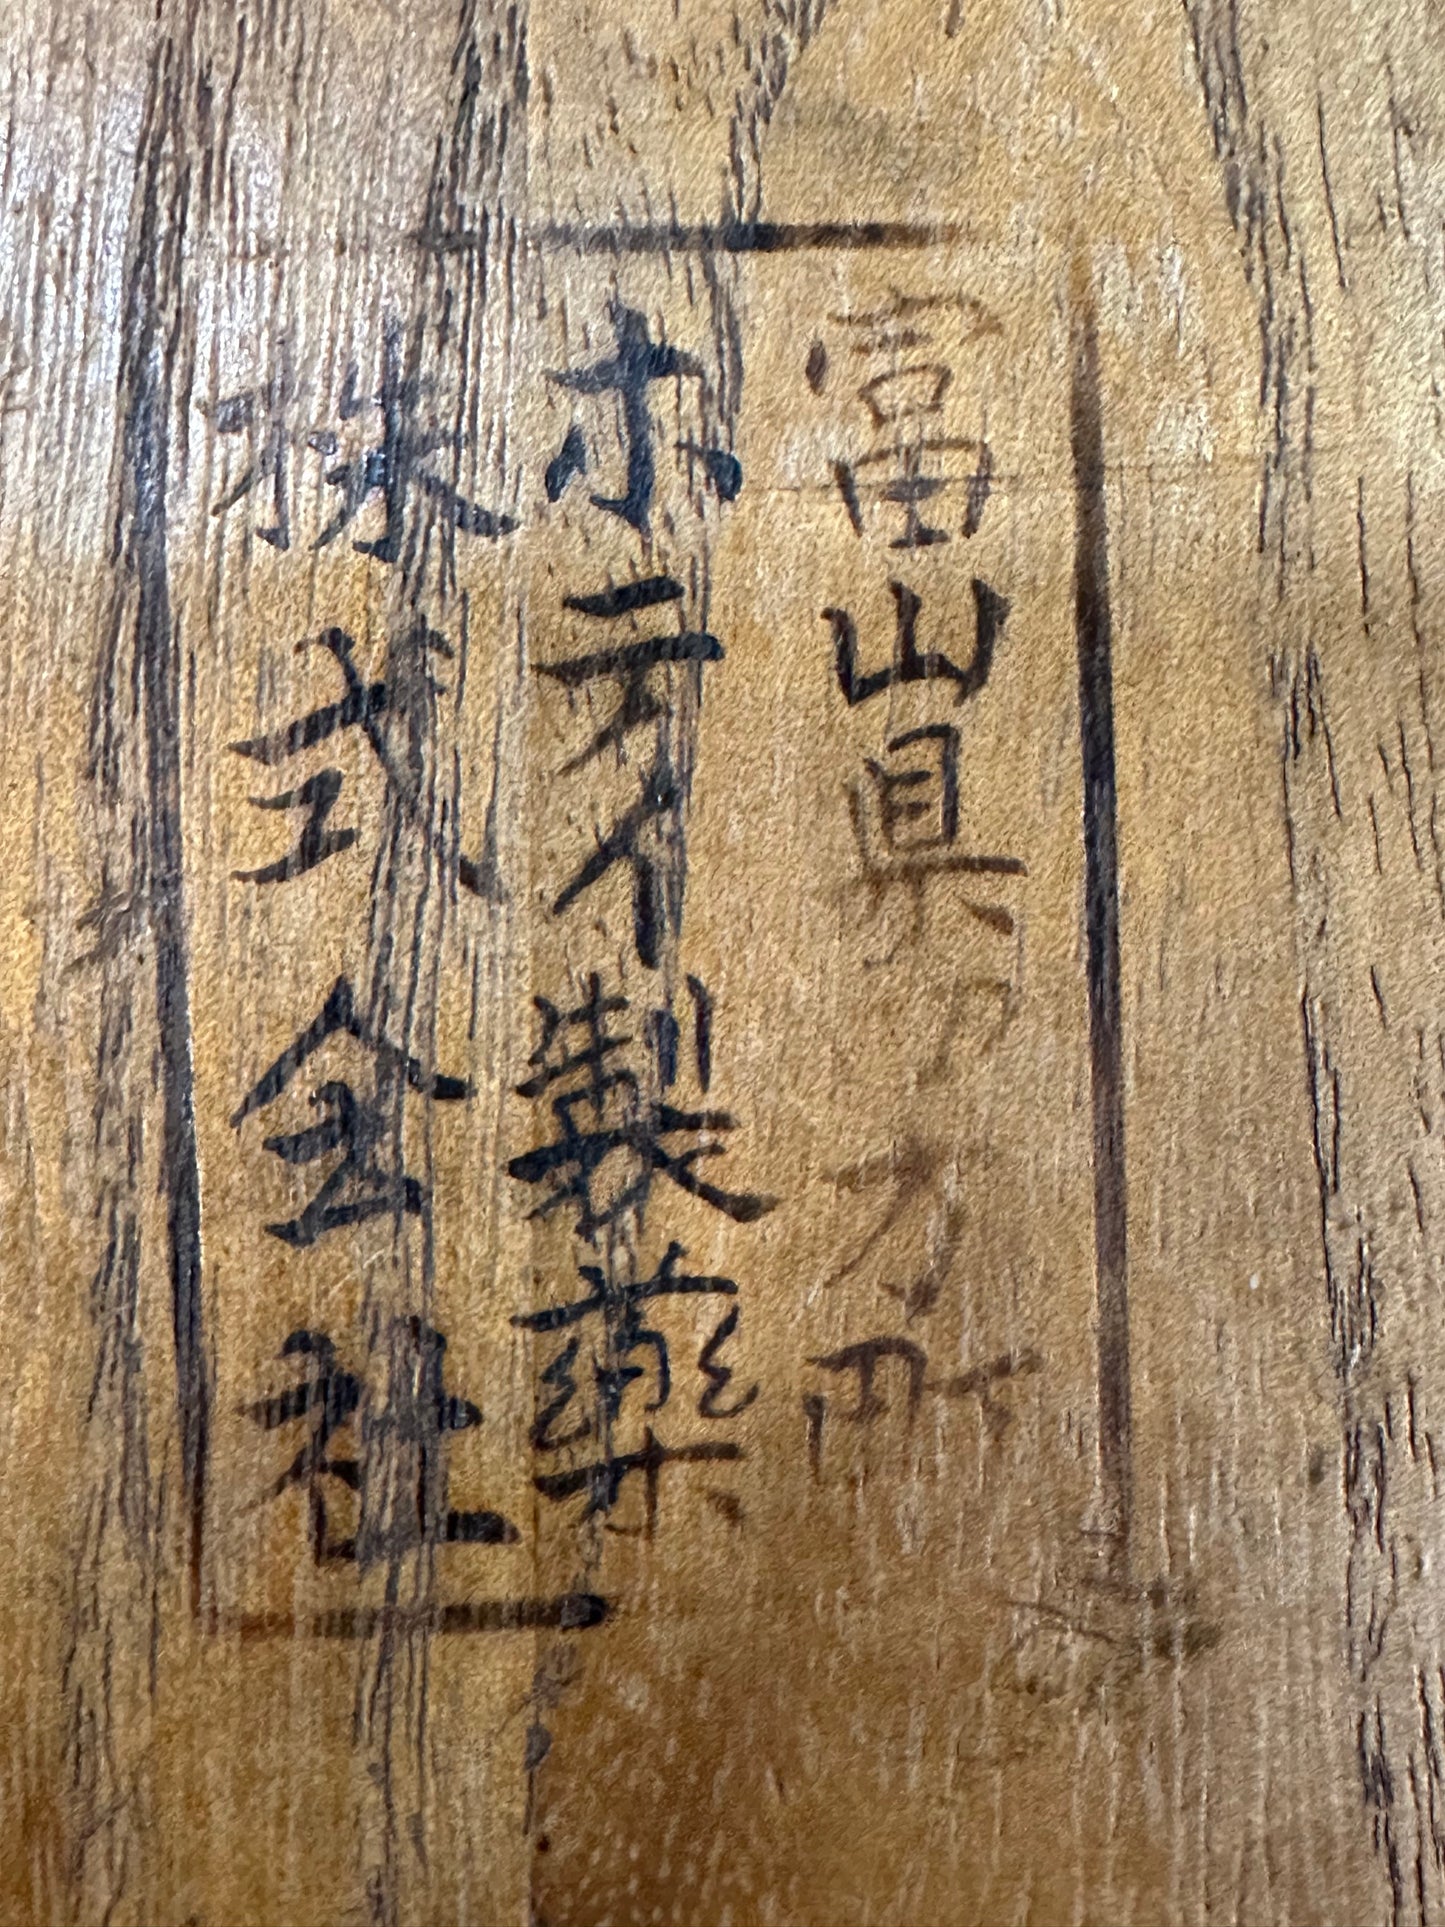 富山県 方町
ホテイ製薬
株式会社